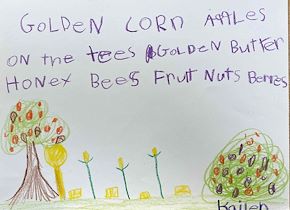 GOLDEN CORN APPLES
ON the tees GOLDEN Butter
HONEY BeeS FRuit NutS Berries
Kailen